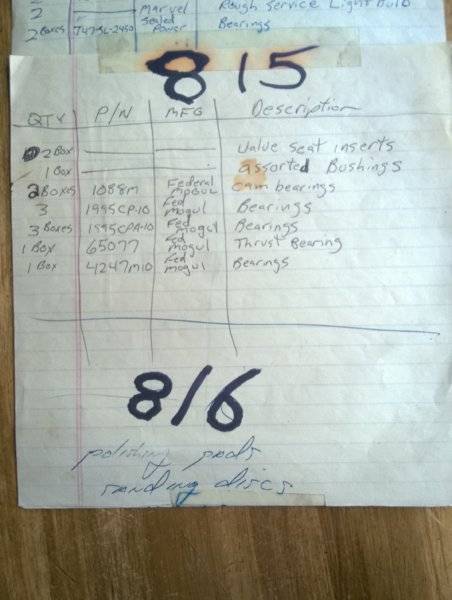 2 Marvel Rough Service Light Bulb
2 Boxes Sealed Power Bearings
815
QTY P/N MFG Description
2 Box Value seat inserts
1 Box assorted Bushings
2 Boxes 1088M Federal Mogul cam bearings
3 1995CP-10 Fed Mogul Bearings
3 Boxes 1995CPA-10 Fed Mogul Bearings
1 Box 65077 Fed Mogul Thrust Bearing
1 Box 4247M10 Fed Mogul Bearings
816
polishing pads
sanding discs